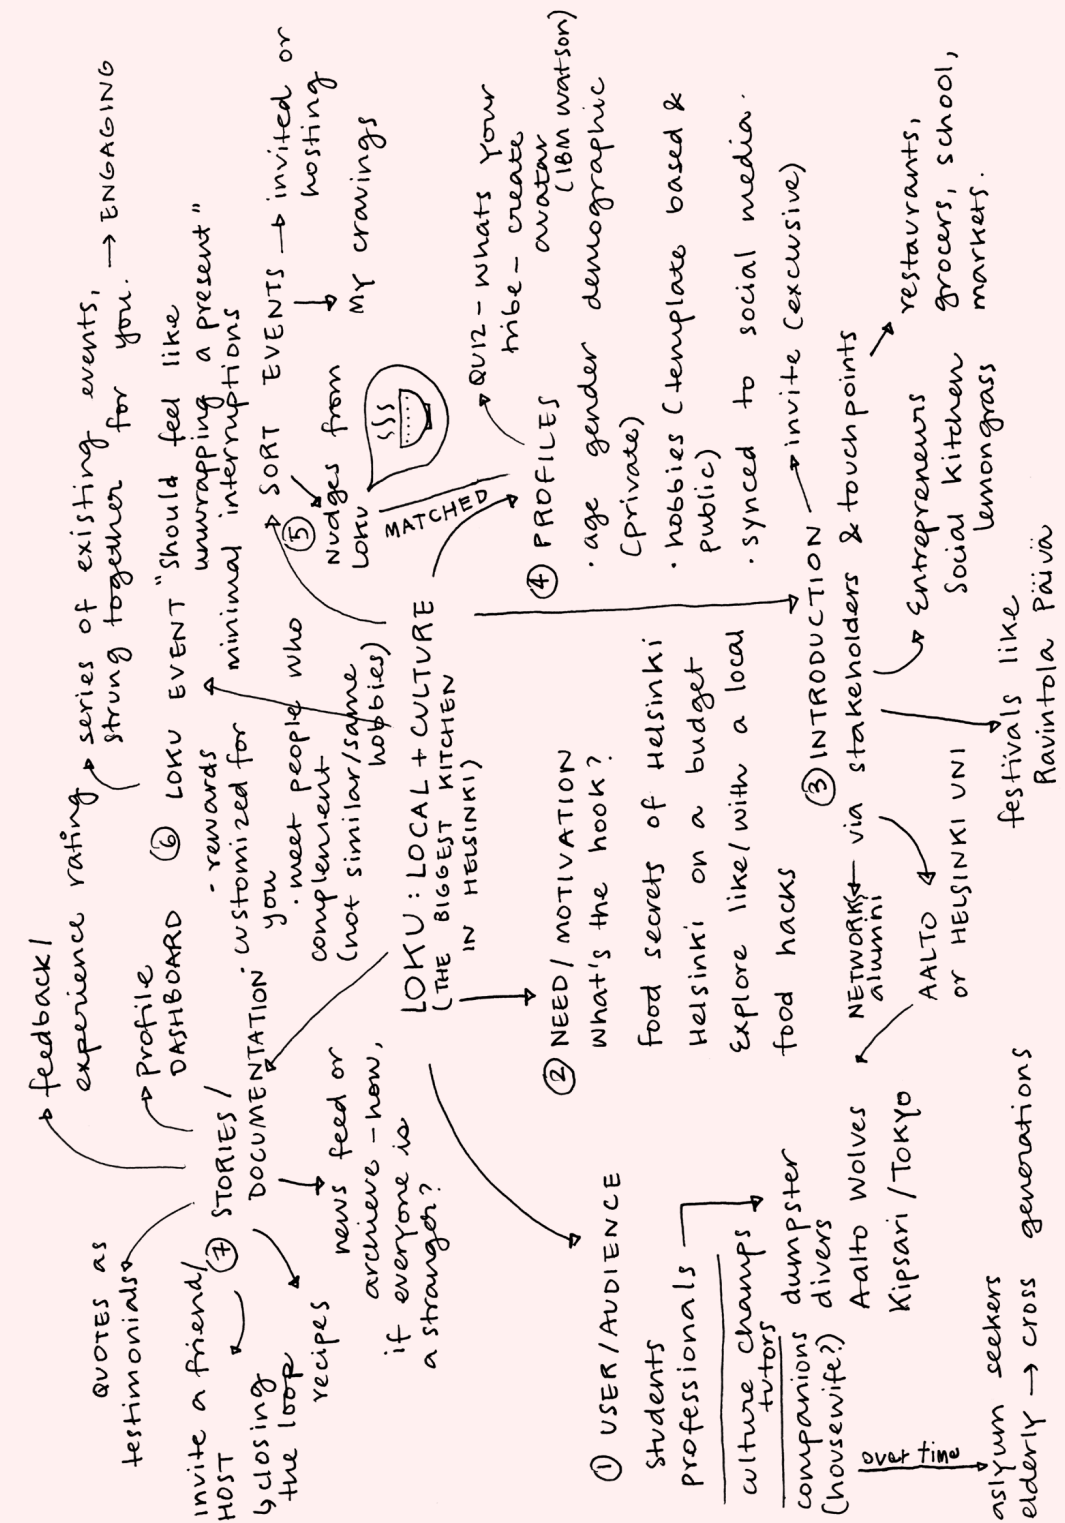 LOKU : LOCAL + CULTURE
(THE BIGGEST KITCHEN
IN HELSINKI)
① USER/AUDIENCE
students
professionals
culture champs
tutors
companions
(housewife?)
over time
aslyum seekers
elderly → cross generations
dumpster
divers
Aalto Wolves
Kipsari / TOKYO
② NEED/MOTIVATION
what's the hook?
food secrets of Helsinki
Helsinki on a budget
Explore like/with a local
food hacks
③ INTRODUCTION → invite (exclusive)
via stakeholders & touchpoints
NETWORKS
alumni
AALTO
or HELSINKI UNI
festivals like
Ravintola Päivä
Entrepreneurs
Social Kitchen
lemongrass
restaurants,
grocers, school,
markets.
④ PROFILES
· age gender demographic
(private)
· hobbies (template based &
public)
· synced to social media.
QUIZ - whats your
tribe - create
avatar
(IBM watson)
MATCHED
⑤ SORT EVENTS → invited or
hosting
My cravings
Nudges from
LOKU
⑥ LOKU EVENT "should feel like
unwrapping a present"
minimal interruptions
· rewards
· customized for
you
· meet people who
complement
(not similar/same
hobbies)
series of existing events,
strung together for you. → ENGAGING
⑦ STORIES/
DOCUMENTATION
feedback/
experience rating
profile
DASHBOARD
news feed or
archieve - how,
if everyone is
a stranger?
recipes
QUOTES as
testimonials
invite a friend/
HOST
↳ closing
the loop